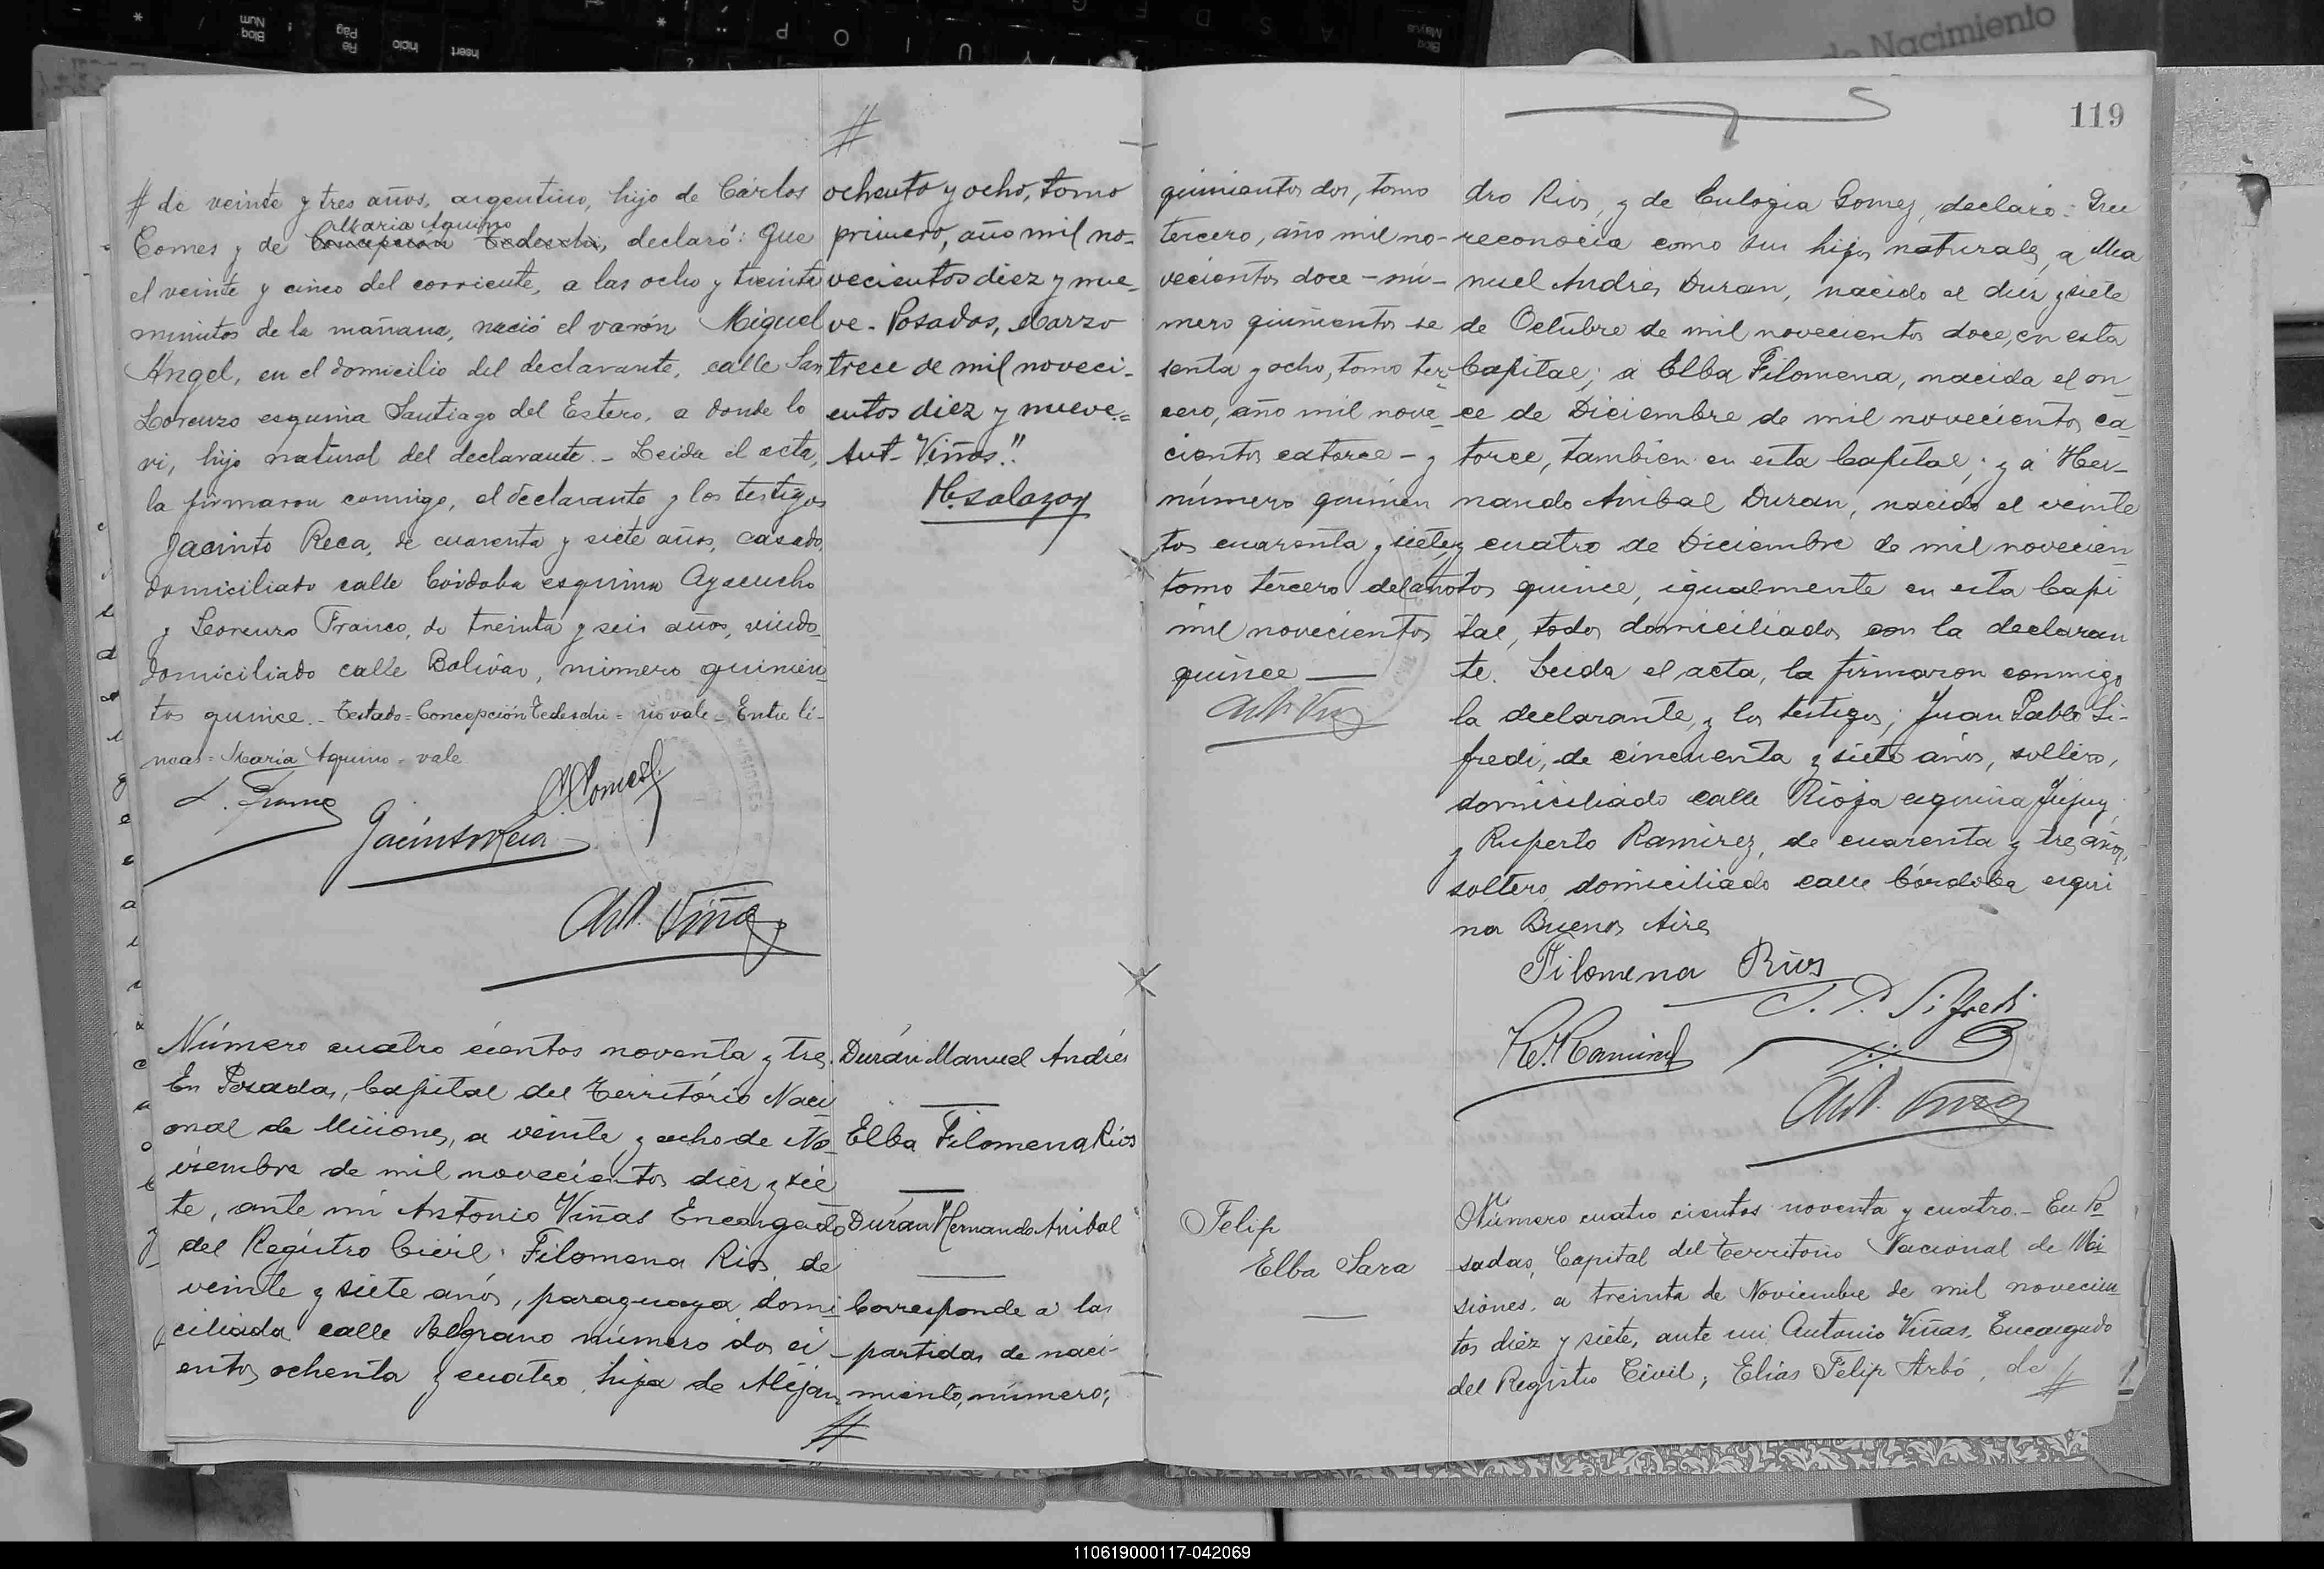 de Nacimiento
119
#
# de veinte y tres años, argentino, hijo de Cárlos
Comes y de Maria Aquino
Concepcion Tedeschi, declaró: Que
el veinte y cinco del corriente, a las ocho y treinta
minutos de la mañana, nació el varón Miguel
Angel, en el domicilio del declarante, calle San
Lorenzo esquina Santiago del Estero, a donde lo
vi, hijo natural del declarante.- Leida el acta,
la firmaron conmigo, el declarante y los testigos
Jacinto Reca, de cuarenta y siete años, casado,
domiciliado calle Córdoba esquina Ayacucho
y Leorenzo Franco, de treinta y seis años, viudo,
domiciliado calle Bolivar, número quinien-
tos quince.- Testado=Concepción Tedeschi=no vale=Entre lí-
neas=Maria Aquino=vale
L. Franco
Jacinto Reca
C. Comes
Ant. Viñas
ochento y ocho, tomo
primero, año mil no-
vecientos diez y nue-
ve. Posadas, Marzo
trece de mil noveci-
entos diez y nueve.=
Ant- Viñas."
Número cuatro cientos noventa y tres.
En Posadas, Capital del Território Naci
onal de Misiones, a veinte y ocho de No-
viembre de mil novecientos diez y sie
te, ante mi Antonio Viñas Encargado
del Registro Civil, Filomena Rios de
veinte y siete años, paraguaya domi
ciliada calle Belgrano número dos ci-
entos ochenta y cuatro, hija de Alejan-
Durán Manuel Andrés
Elba Filomena Rios
Durán Hernando Anibal
Corresponde a las
partidas de naci-
miento, número;
#
quinientos dos, tomo
tercero, año mil no-
vecientos doce - nú-
mero quinientos se
senta y ocho, tomo ter-
cero, año mil nove-
cientos catorce - y
número quinien
tos cuarenta y siete,
tomo tercero del año
mil novecientos
quince —
Ant. Viñas
dro Rios, y de Eulogia Gomez, declaró: Que
reconocia como sus hijos naturales, a Ma
nuel Andres Duran, nacido el diez y siete
de Octubre de mil novecientos doce, en esta
Capital; a Elba Filomena, nacida el on-
ce de Diciembre de mil novecientos ca-
torce, tambien en esta Capital; y a Her-
nando Anibal Duran, nacido el veinte
y cuatro de Diciembre de mil novecien-
tos quince, igualmente en esta Capi
tal, todos domiciliados con la declaran
te. Leida el acta, la firmaron conmigo
la declarante, y los testigos; Juan Pablo Si-
fredi, de cincuenta y siete años, soltero,
domiciliado calle Rioja esquina Jujuy,
y Ruperto Ramirez, de cuarenta y tres años,
soltero, domiciliado calle Córdoba esqui
na Buenos Aires
Filomena Rios
J. P. Sifredi
R. Ramirez
Ant. Viñas
Felip
Elba Sara
Número cuatro cientos noventa y cuatro.- En Po
sadas, Capital del Territorio Nacional de Mi
siones, a treinta de Noviembre de mil novecien
tos diez y siete, ante mi, Antonio Viñas, Encargado
del Registro Civil; Elías Felip Arbó, de #
110619000117-042069